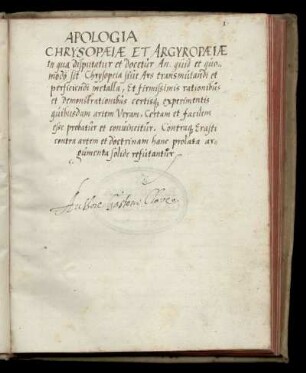 APOLOGIA
CHRYSOPÆIÆ ET ARGYROPÆIÆ
In qua disputatur et docetur An. quid et quo-
modo sit Chrysopœia siue Ars transmutandi et
perficiendi metalla, Et firmissimis rationibus
et demonstrationibus certisq experimentis
quibusdam artem Veram, Certam et facilem
esse probatur et conuincitur. Contraq Erasti
contra artem et doctrinam hanc prolata ar-
gumenta solidè refutantur
Authore Gastone Claveo